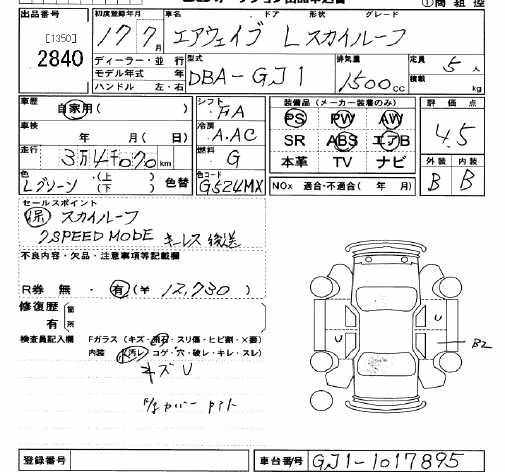 出品番号
[1350]
2840
初度登録年月
17 7月
車名 ドア 形状 グレード
エアウェイブ Lスカイルーフ
ディーラー・並 行
モデル年式 年
ハンドル 左・右
型式
DBA-GJ1
排気量
1500cc
定員
5人
積載
kg
車歴
自家用( )
車検
年 月( 日)
走行
3万4千070km
色
Lグリーン (上)(下) 色替
シフト
FA
冷房
A.AC
燃料
G
色コード
G524MX
装備品 (メーカー装着のみ)
PS PW AW
SR ABS エアB
本革 TV ナビ
NOx 適合・不適合( 年 月)
評 価 点
4.5
外装 内装
B B
セールスポイント
保 スカイルーフ
7SPEED MODE キーレス 後送
不良内容・欠品・注意事項等記載欄
R券 無・有(¥ 12,730)
修復歴
有
検査員記入欄
Fガラス (キズ・飛石・スリ傷・ヒビ割・×要)
内装 (汚レ・コゲ・穴・破レ・キレ・スレ)
キズU
U
U
B2
登録番号
車台番号 GJ1-1017895